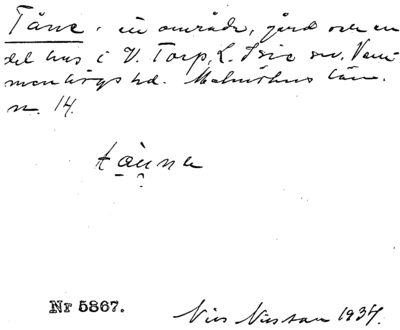 Tåne, ett område, gård och en
del hus i V. Torp, L. Isie sn. Vem-
menhögs hd. Malmöhus län.
n. 14.
tåunna
Nr 5867.
Nils Nilsson 1934.